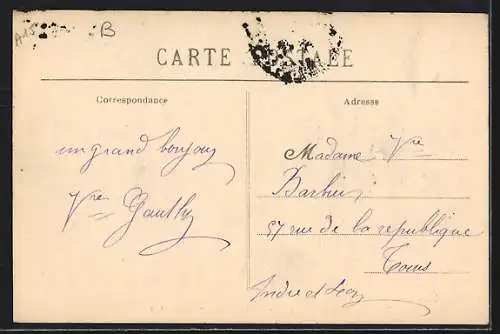 A15
B
CARTE POSTALE
Correspondance
Adresse
un grand bonjour
Vve Gauthy
Madame Vve
Barbier
57 rue de la republique
Tours
Indre et Loir